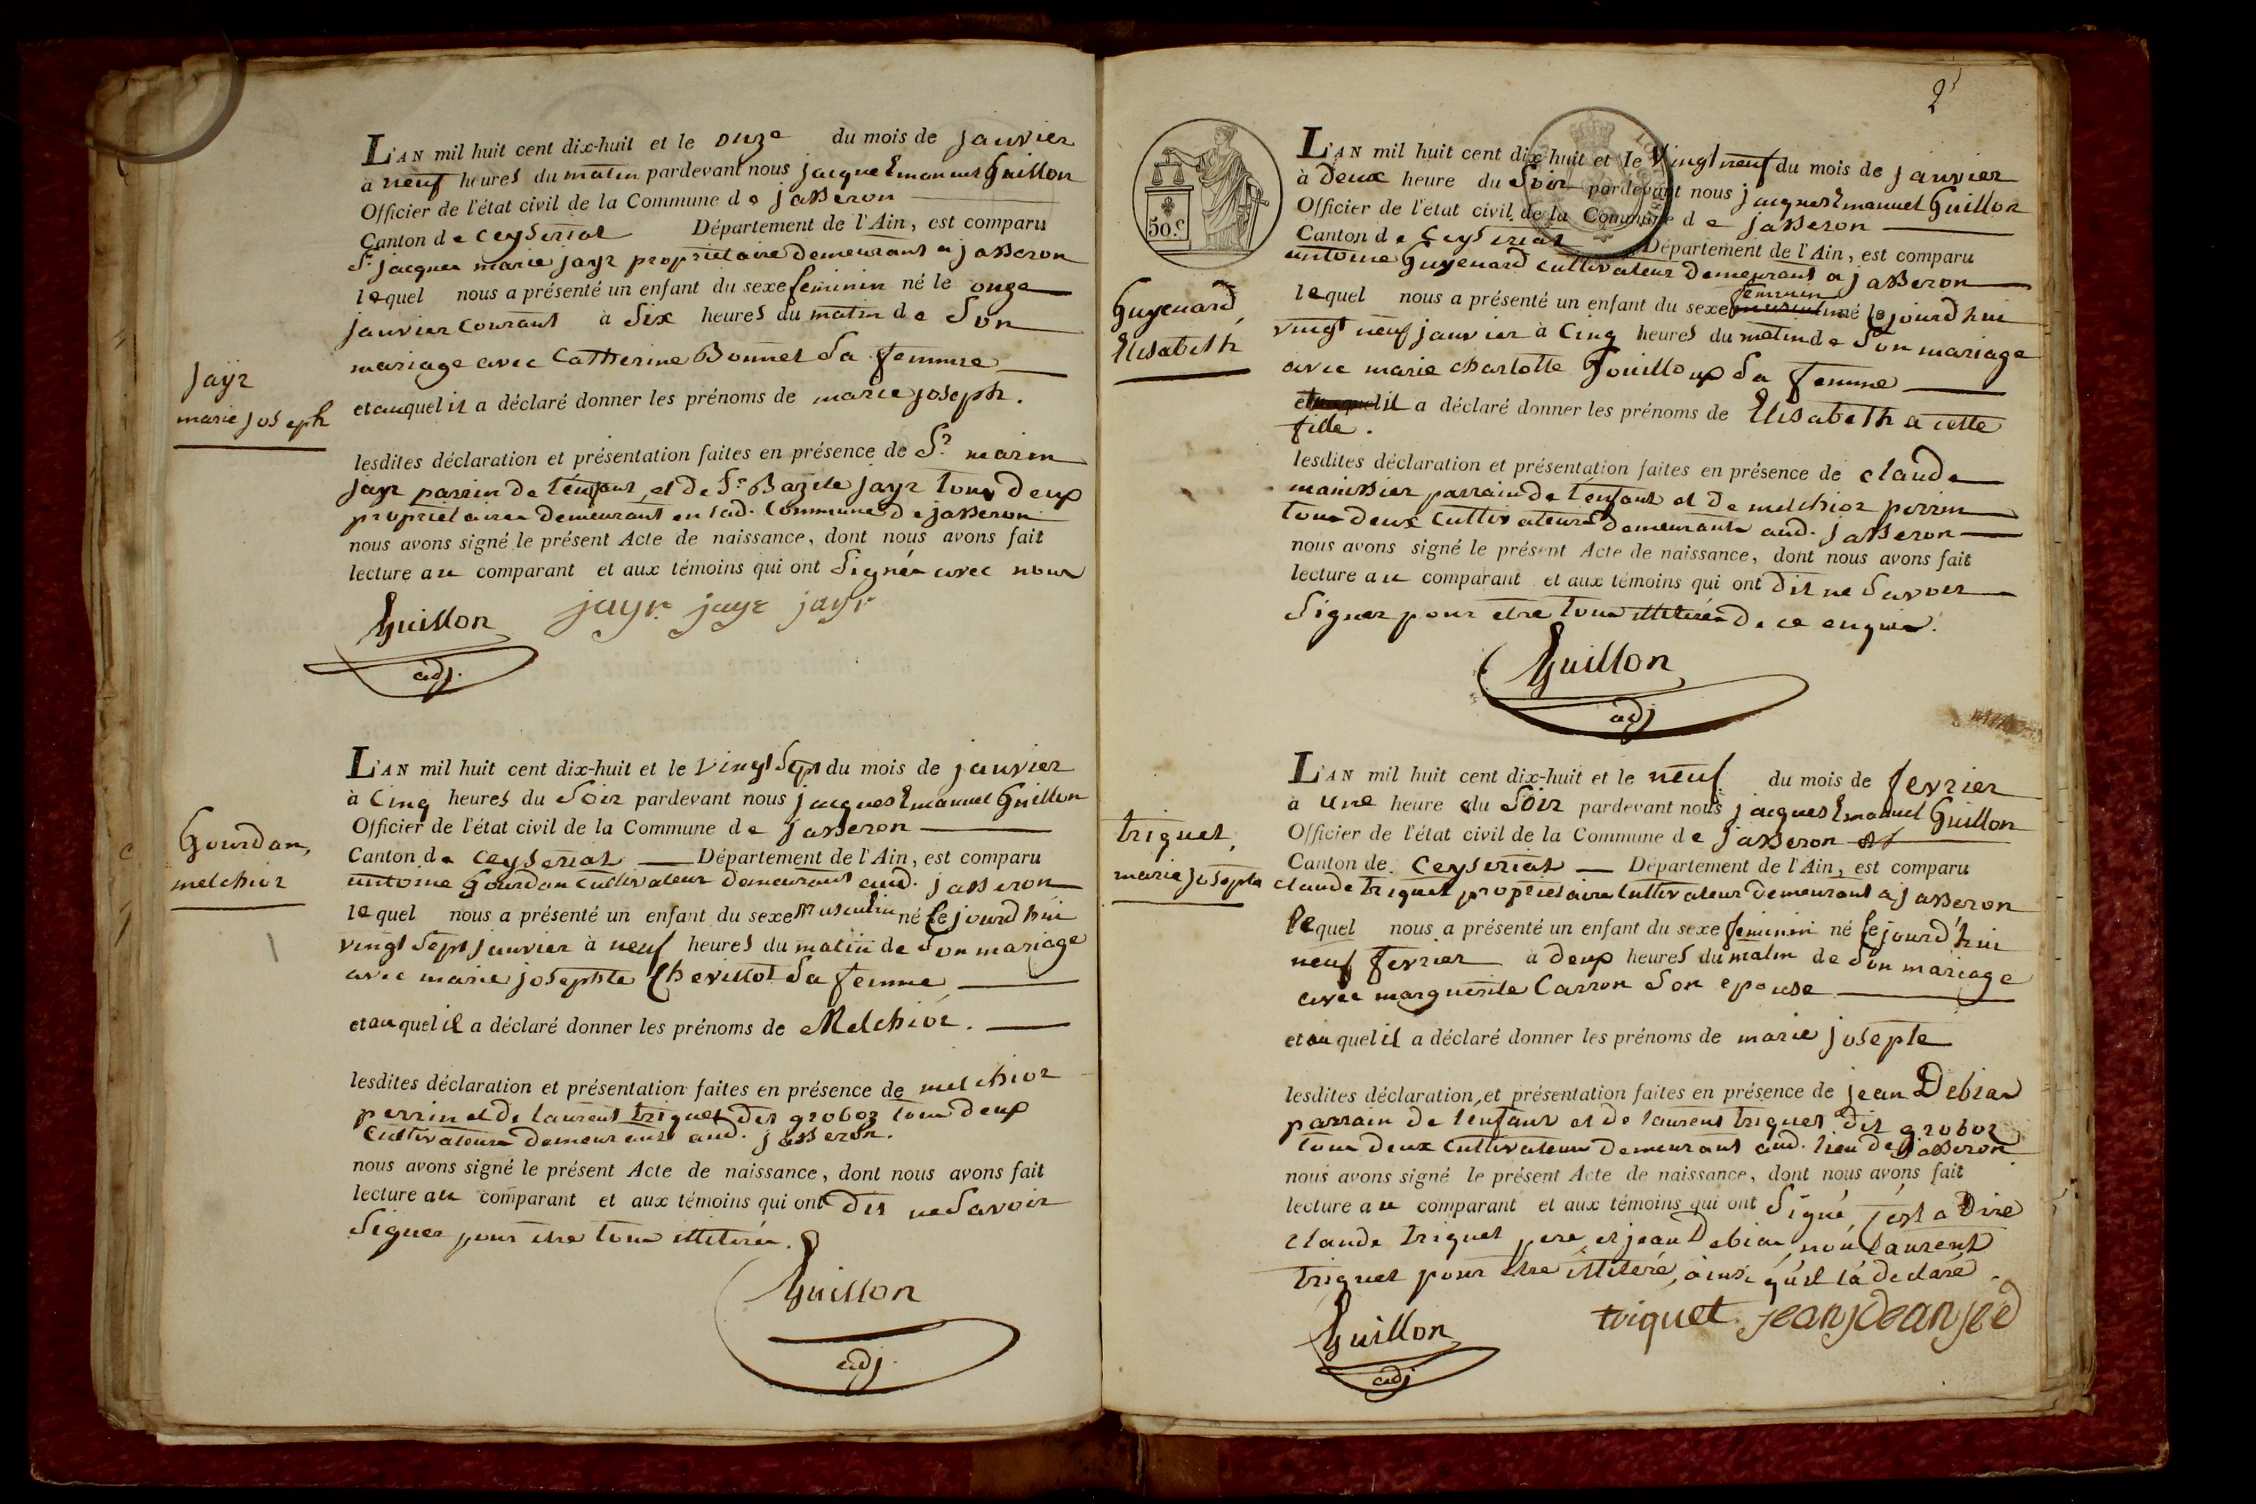 L'AN mil huit cent dix-huit et le onze du mois de janvier
à neuf heures du matin pardevant nous jacques Emanuel Guillon
Officier de l'état civil de la Commune de jasseron
Canton de Ceyseriat Département de l'Ain, est comparu
Sr. jacques marie jayr proprietaire demeurant a jasseron
lequel nous a présenté un enfant du sexe feminin né le onze
janvier courant à Six heures du matin de Son
mariage avec Catherine Bonnet Sa femme
Jayr
marie joseph
et auquel il a déclaré donner les prénoms de marie joseph.
lesdites déclaration et présentation faites en présence de Sr. marin
jayr parrin de l'enfant, et de Sr. Bazile jayr tous deux
proprietaires demeurant en lad. Commune de jasseron
nous avons signé le présent Acte de naissance, dont nous avons fait
lecture au comparant et aux témoins qui ont Signés avec nous
Guillon jayr jayr jayr
adj.
L'AN mil huit cent dix-huit et le vingt Sept du mois de janvier
à Cinq heures du Soir pardevant nous jacques Emanuel Guillon
Officier de l'état civil de la Commune de jasseron
Canton de Ceyseriat Département de l'Ain, est comparu
antoine Gourdan Cultivateur demeurant aud. jasseron
Gourdan,
melchior
lequel nous a présenté un enfant du sexe Masculin né Ce jourd'hui
vingt Sept janvier à neuf heures du matin de Son mariage
avec marie josephte Chevillot Sa femme
et auquel il a déclaré donner les prénoms de Melchior.
lesdites déclaration et présentation faites en présence de melchior
perrin et de laurent triquet dit groboz tous deux
Cultivateurs demeurant aud. jasseron.
nous avons signé le présent Acte de naissance, dont nous avons fait
lecture au comparant et aux témoins qui ont Dit ne Savoir
Signer pour etre tous illiterés.
Guillon
adj.
2
50.c
L'AN mil huit cent dix-huit et le Vingt neuf du mois de janvier
à Deux heure du Soir pardevant nous jacques Emanuel Guillon
Officier de l'état civil de la Commune de jasseron
Canton de Ceyseriat Département de l'Ain, est comparu
antoine Guyenard cultivateur demeurant a jasseron
Guyenard,
Elisabeth
lequel nous a présenté un enfant du sexe feminin né le jourd'hui
vingt neuf janvier à Cinq heures du matin de Son mariage
avec marie charlotte Pouilloux Sa femme
et auquel il a déclaré donner les prénoms de Elisabeth a cette
fille.
lesdites déclaration et présentation faites en présence de claude
manissier parrain de l'enfant et de melchior perrin
tous deux Cultivateurs demeurants aud. jasseron
nous avons signé le présent Acte de naissance, dont nous avons fait
lecture au comparant et aux témoins qui ont Dit ne Savoir
Signer pour etre tous illiterés de ce enquis.
Guillon
adj
L'AN mil huit cent dix-huit et le neuf du mois de fevrier
à une heure du Soir pardevant nous jacques Emanuel Guillon
Officier de l'état civil de la Commune de jasseron
Canton de Ceyseriat Département de l'Ain, est comparu
claude triquet proprietaire Cultivateur demeurant a jasseron
triquet,
marie josephte
lequel nous a présenté un enfant du sexe feminin né Ce jourd'hui
neuf fevrier à deux heures du matin de Son mariage
avec marguerite Carron Son epouse
et auquel il a déclaré donner les prénoms de marie josephte
lesdites déclaration et présentation faites en présence de jean Debian
parrain de l'enfant et de laurent triquet dit groboz
tous deux Cultivateurs demeurant aud. lieu de jasseron
nous avons signé le présent Acte de naissance, dont nous avons fait
lecture au comparant et aux témoins qui ont Signé, c'est a Dire
claude triquet pere, et jean Debian, non laurent
triquet pour etre illiteré, ainsi qu'il l'a declaré.
Guillon triquet
adj